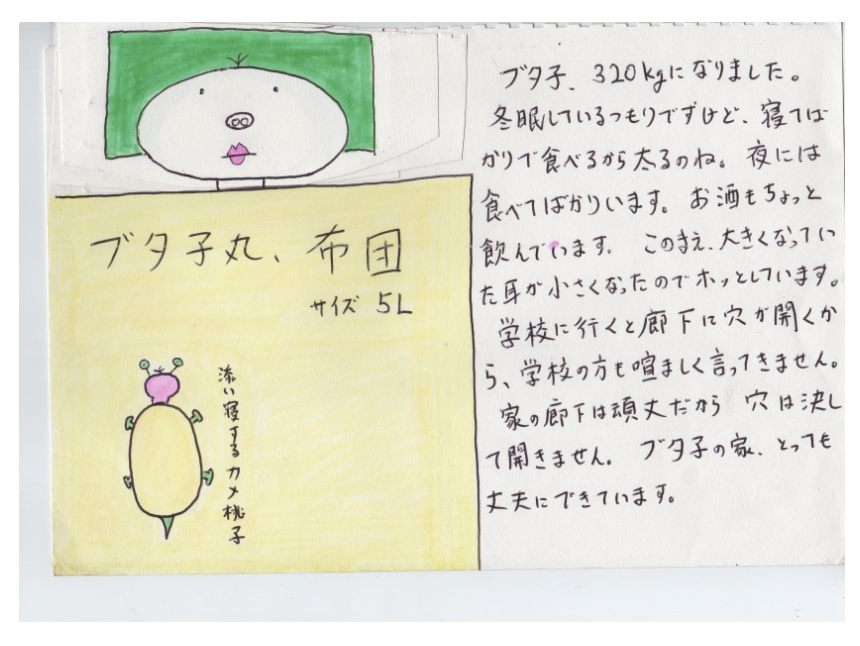 ブタ子丸、布団
サイズ 5L
添い寝するカメ桃子
ブタ子、320kgになりました。
冬眠しているつもりですけど、寝てば
かりで食べるから太るのね。夜には
食べてばかりいます。お酒もちょっと
飲んでいます。このまえ、大きくなってい
た耳が小さくなったのでホッとしています。
学校に行くと廊下に穴が開くか
ら、学校の方も喧ましく言ってきません。
家の廊下は頑丈だから 穴は決し
て開きません。ブタ子の家、とっても
丈夫にできています。